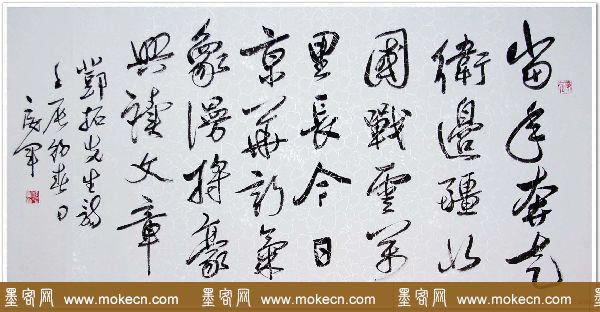 當年奔走
衛邊疆北
國戰雲萬
里長今日
京華新氣
象漫將豪
興讀文章
鄧拓先生詩
壬辰初春日
墨客网 www.mokecn.com 墨客网 www.mokecn.com 墨客网 www.mokecn.com